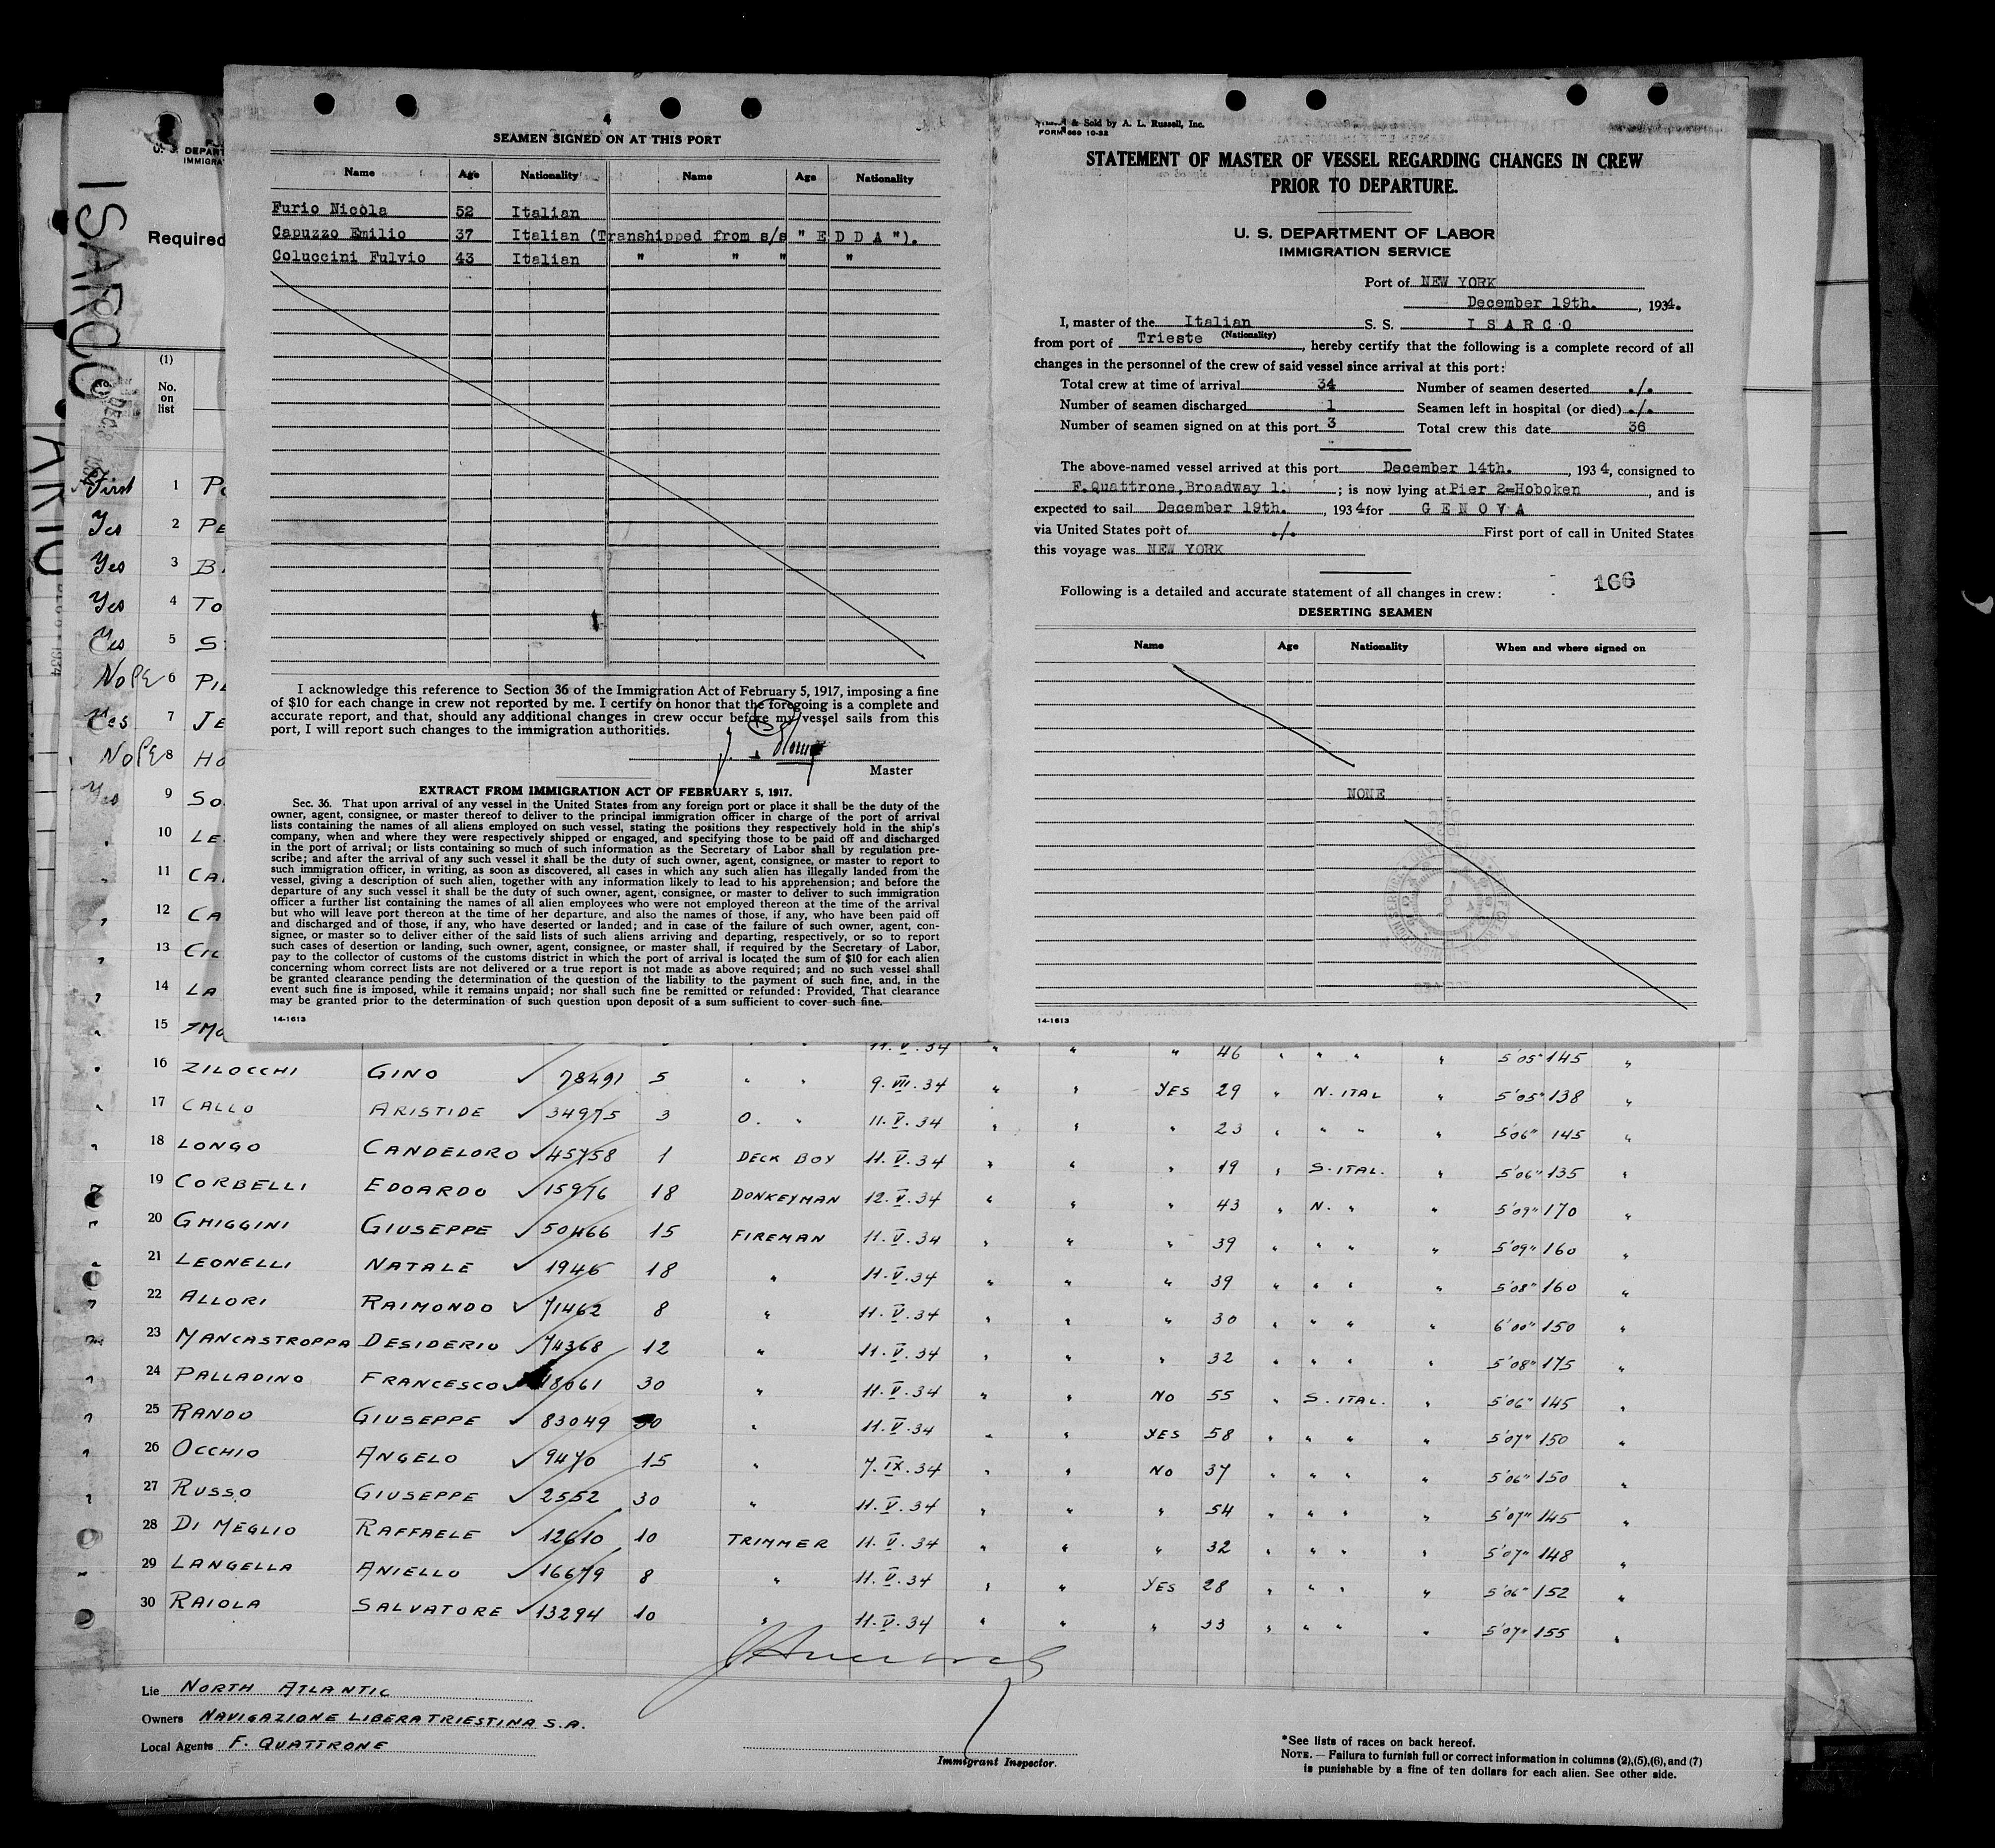 4
SEAMEN SIGNED ON AT THIS PORT
Name Age Nationality Name Age Nationality
Furio Nicola 52 Italian
Capuzzo Emilio 37 Italian (Transhipped from s/s " E D D A ").
Coluccini Fulvio 43 Italian " " " "
I acknowledge this reference to Section 36 of the Immigration Act of February 5, 1917, imposing a fine
of $10 for each change in crew not reported by me. I certify on honor that the foregoing is a complete and
accurate report, and that, should any additional changes in crew occur before my vessel sails from this
port, I will report such changes to the immigration authorities.
Master
EXTRACT FROM IMMIGRATION ACT OF FEBRUARY 5, 1917.
Sec. 36. That upon arrival of any vessel in the United States from any foreign port or place it shall be the duty of the
owner, agent, consignee, or master thereof to deliver to the principal immigration officer in charge of the port of arrival
lists containing the names of all aliens employed on such vessel, stating the positions they respectively hold in the ship's
company, when and where they were respectively shipped or engaged, and specifying those to be paid off and discharged
in the port of arrival; or lists containing so much of such information as the Secretary of Labor shall by regulation pre-
scribe; and after the arrival of any such vessel it shall be the duty of such owner, agent, consignee, or master to report to
such immigration officer, in writing, as soon as discovered, all cases in which any such alien has illegally landed from the
vessel, giving a description of such alien, together with any information likely to lead to his apprehension; and before the
departure of any such vessel it shall be the duty of such owner, agent, consignee, or master to deliver to such immigration
officer a further list containing the names of all alien employees who were not employed thereon at the time of the arrival
but who will leave port thereon at the time of her departure, and also the names of those, if any, who have been paid off
and discharged and of those, if any, who have deserted or landed; and in case of the failure of such owner, agent, con-
signee, or master so to deliver either of the said lists of such aliens arriving and departing, respectively, or so to report
such cases of desertion or landing, such owner, agent, consignee, or master shall, if required by the Secretary of Labor,
pay to the collector of customs of the customs district in which the port of arrival is located the sum of $10 for each alien
concerning whom correct lists are not delivered or a true report is not made as above required; and no such vessel shall
be granted clearance pending the determination of the question of the liability to the payment of such fine, and, in the
event such fine is imposed, while it remains unpaid; nor shall such fine be remitted or refunded: Provided, That clearance
may be granted prior to the determination of such question upon deposit of a sum sufficient to cover such fine.
14-1613
& Sold by A. L. Russell, Inc.
FORM 689 10-32
STATEMENT OF MASTER OF VESSEL REGARDING CHANGES IN CREW
PRIOR TO DEPARTURE.
U. S. DEPARTMENT OF LABOR
IMMIGRATION SERVICE
Port of NEW YORK
December 19th. , 1934.
I, master of the Italian S. S. I S A R C O
(Nationality)
from port of Trieste , hereby certify that the following is a complete record of all
changes in the personnel of the crew of said vessel since arrival at this port:
Total crew at time of arrival 34 Number of seamen deserted ./.
Number of seamen discharged 1 Seamen left in hospital (or died) ./.
Number of seamen signed on at this port 3 Total crew this date 36
The above-named vessel arrived at this port December 14th. , 1934, consigned to
F.Quattrone,Broadway 1. ; is now lying at Pier 2=Hoboken , and is
expected to sail December 19th. , 1934 for G E N O V A
via United States port of ./. First port of call in United States
this voyage was NEW YORK
Following is a detailed and accurate statement of all changes in crew: 166
DESERTING SEAMEN
Name Age Nationality When and where signed on
NONE
14-1613
ISARCO
U. S. DEPART
IMMIGRA
Required
(1)
No.
on
list
First 1
Yes 2 PE
Yes 3 B
Yes 4 TO
Yes 5 S
No PE 6 PI
Yes 7 JE
No PE 8 HO
Yes 9 SO
10 LE
11 CA
12 CA
13 CIC
14 LA
15
11. V. 34 " " " 46 " " " " 5'05" 145 "
16 ZILOCCHI GINO ✓ 78491 5 " " 9. VII. 34 " " YES 29 " N. ITAL " 5'05" 138 "
17 CALLO ARISTIDE ✓ 34975 3 O. " 11. V. 34 " " " 23 " " " " 5'06" 145 "
18 LONGO CANDELORO ✓ 45758 1 DECK BOY 11. V. 34 " " " 19 " S. ITAL. " 5'06" 135 "
19 CORBELLI EDOARDO ✓ 15976 18 DONKEYMAN 12. V. 34 " " " 43 " N. " " 5'09" 170 "
20 GHIGGINI GIUSEPPE ✓ 50466 15 FIREMAN 11. V. 34 " " " 39 " " " " 5'09" 160 "
21 LEONELLI NATALE ✓ 1946 18 " 11. V. 34 " " " 39 " " " " 5'08" 160 "
22 ALLORI RAIMONDO ✓ 71462 8 " 11. V. 34 " " " 30 " " " " 6'00" 150 "
23 MANCASTROPPA DESIDERIO ✓ 74368 12 " 11. V. 34 " " " 32 " " " " 5'08" 175 "
24 PALLADINO FRANCESCO ✓ 18061 30 " 11. V. 34 " " NO 55 " S. ITAL. " 5'06" 145 "
25 RANDO GIUSEPPE ✓ 83049 30 " 11. V. 34 " " YES 58 " " " " 5'07" 150 "
26 OCCHIO ANGELO ✓ 9470 15 " 7. IX. 34 " " NO 37 " " " " 5'06" 150 "
27 RUSSO GIUSEPPE ✓ 2552 30 " 11. V. 34 " " " 54 " " " " 5'07" 145 "
28 DI MEGLIO RAFFAELE ✓ 12610 10 TRIMMER 11. V. 34 " " " 32 " " " " 5'07" 148 "
29 LANGELLA ANIELLO ✓ 16679 8 " 11. V. 34 " " YES 28 " " " " 5'06" 152 "
30 RAIOLA SALVATORE ✓ 13294 10 " 11. V. 34 " " " 33 " " " " 5'07" 155 "
Lie NORTH ATLANTIC
Owners NAVIGAZIONE LIBERA TRIESTINA S.A.
Local Agents F. QUATTRONE
Immigrant Inspector.
*See lists of races on back hereof.
NOTE. — Failura to furnish full or correct information in columns (2),(5),(6), and (7)
is punishable by a fine of ten dollars for each alien. See other side.